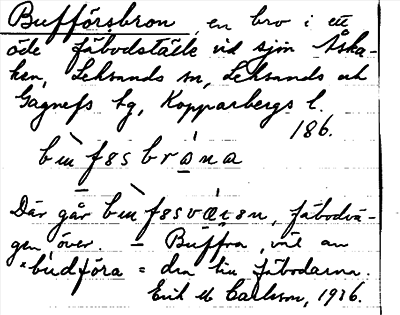 Bufförsbron, en bro i ett
öde fäbodställe vid sjön Åska-
ken, Leksands sn, Leksands och
Gagnefs tg, Kopparbergs l.
186.
Där går
fäbodvä-
gen över. – Buffra, väl av
"budföra" = dra till fäbodarna.
Erik M Carlsson, 1916.